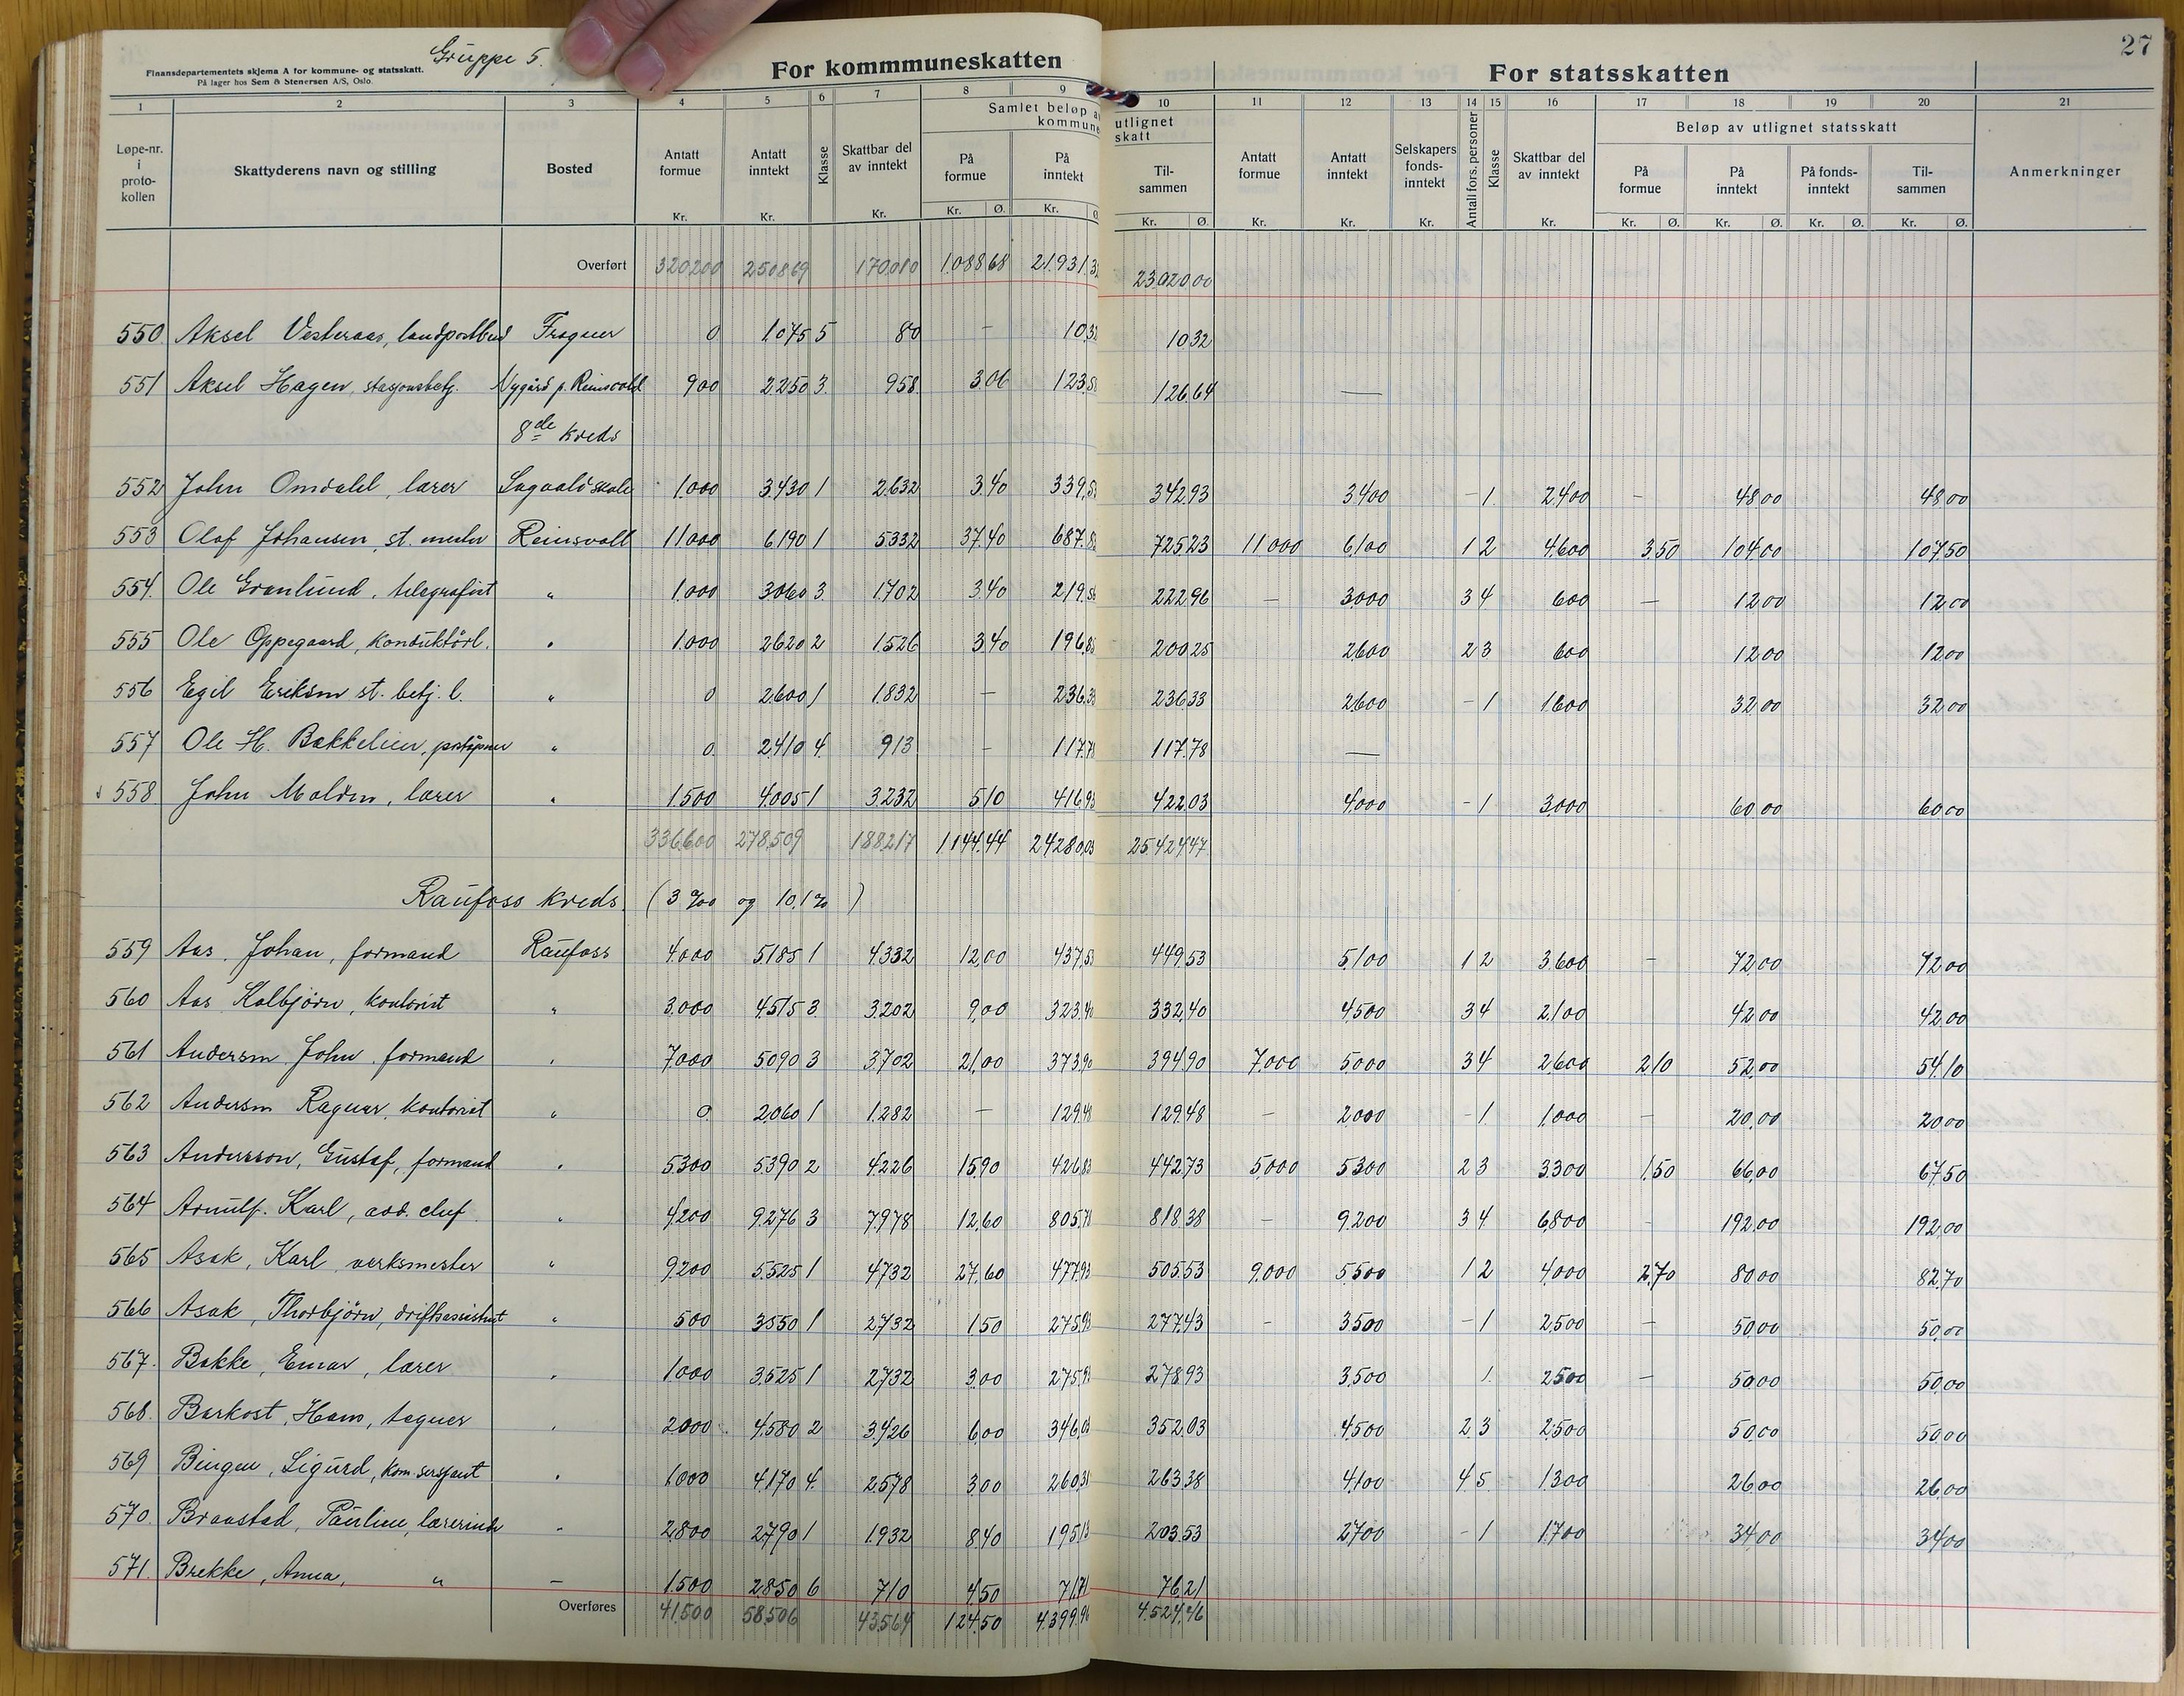 Gruppe 5.
Finansdepartementets skjema A for kommune- og statsskatt.
På lager hos Sem & Stenersen A/S, Oslo.
For kommmuneskatten
For statsskatten
27
1 2 3 4 5 6 7 8 9 10 11 12 13 14 15 16 17 18 19 20 21
Løpe-nr. i proto-kollen
Skattyderens navn og stilling
Bosted
Antatt formue Kr.
Antatt inntekt Kr.
Klasse
Skattbar del av inntekt Kr.
Samlet beløp a
kommune
På formue Kr. Ø.
På inntekt Kr. Ø
utlignet skatt
Til-sammen Kr. Ø.
Antatt formue Kr.
Antatt inntekt Kr.
Selskapers fonds-inntekt Kr.
Antall fors. personer
Klasse
Skattbar del av inntekt Kr.
Beløp av utlignet statsskatt
På formue Kr. Ø.
På inntekt Kr. Ø.
På fonds-inntekt Kr. Ø.
Til-sammen Kr. Ø.
Anmerkninger
Overført 320200 250869 170.010 1.088 68 21.931.3 23.020 00
550 Aksel Vesteraas, landpostbud Frogner 0 1.075 5 80 – 10.32 10 32
551 Aksel Hagen, stasjonsbetj. Nygård p. Reinsvold 900 2.250 3 958 3.06 123.58 126 64 —
8de kreds
552 John Omdahl, lærer Sagvold skole 1.000 3.430 1 2.632 3.40 339.53 342 93 3.400 – 1 2.400 – 48 00 48 00
553 Olaf Johansen, st. mester Reinsvoll 11.000 6.190 1 5.332 37.40 687.83 725 23 11 000 6.100 1 2 4.600 3.50 104 00 107 50
554 Ole Grønlund, telegrafist " 1.000 3060 3 1.702 3.40 219.56 222 96 – 3.000 3 4 600 – 12 00 12 00
555 Ole Oppegaard, konduktørl. " 1.000 2620 2 1.526 3.40 196.85 200 25 2.600 2 3 600 12 00 12 00
556 Egil Eriksen st. betj. l. " 0 2.600 1 1.832 – 236.33 236 33 2.600 – 1 1.600 32 00 32 00
557 Ole H. Bakkelien, " 0 2.410 4 913 – 117.78 117.78 —
558 John Molden, lærer " 1.500 4.005 1 3.232 5 10 416.93 422 03 4.000 – 1 3.000 60 00 60 00
336.600 278.509 188.217 1144.44 24280.03 25.424 47
Raufoss kreds. (3 ‰ og 10,1 % )
559 Aas, Johan, formand Raufoss 4.000 5185 1 4.332 12,00 437,53 449,53 5.100 1 2 3.600 – 72.00 72 00
560 Aas Kolbjørn, kontorist " 3.000 4515 3 3.202 9,00 323.40 332,40 4.500 3 4 2.100 42 00 42 00
561 Andersen John, formand " 7.000 5090 3 3.702 21,00 373.90 394,90 7.000 5.000 3 4 2.600 2.10 52.00 54.10
562 Andersen Ragnar, kontorist " 0 2060 1 1.282 – 129.48 129.48 – 2.000 – 1 1.000 – 20,00 20 00
563 Andersson, Gustaf, formand " 5.300 5.390 2 4.226 15.90 426.83 442.73 5.000 5.300 2 3 3.300 1.50 66.00 67.50
564 Arnulf. Karl, avd. chef " 4.200 9.276 3 7.978 12,60 805.78 818.38 – 9.200 3 4 6.800 – 192.00 192 00
565 Asak, Karl verksmester " 9.200 5.525 1 4.732 27.60 477.93 505.53 9.000 5.500 1 2 4.000 2.70 80 00 82.70
566 Asak, Thorbjørn, driftsassistent " 500 3550 1 2.732 1 50 275.93 277.43 – 3500 – 1 2.500 – 50.00 50.00
567 Bakke, Einar, lærer " 1.000 3.525 1 2.732 3.00 275.93 278.93 3.500 1 2500 – 50.00 50.00
568 Barkost, Hans, tegner " 2.000 4.580 2 3.426 6.00 346.03 352.03 4.500 2 3 2.500 50.00 50.00
569 Bingen, Sigurd, kom. sersjant " 1.000 4.170 4 2578 3.00 260.38 263.38 4.100 4 5 1.300 26.00 26.00
570 Braastad, Pauline, lærerinde " 2.800 2.790 1 1.932 8.40 195.13 203.53 2.700 – 1 1.700 34.00 34 00
571 Brekke, Anna, " – 1.500 2.850 6 710 4.50 71.71 76.21
Overføres 41.500 58.506 43.564 124.50 4.399.96 4.524.46